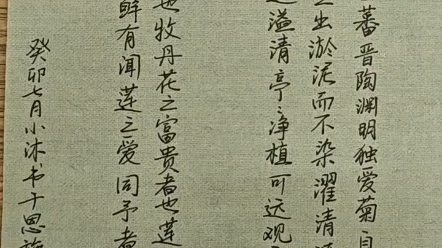 蕃晋陶渊明独爱菊自
之出淤泥而不染濯清
溢清亭〻净植可远观
也牡丹花之富贵者也莲
鲜有闻莲之爱同予者
癸卯七月小沐书于思